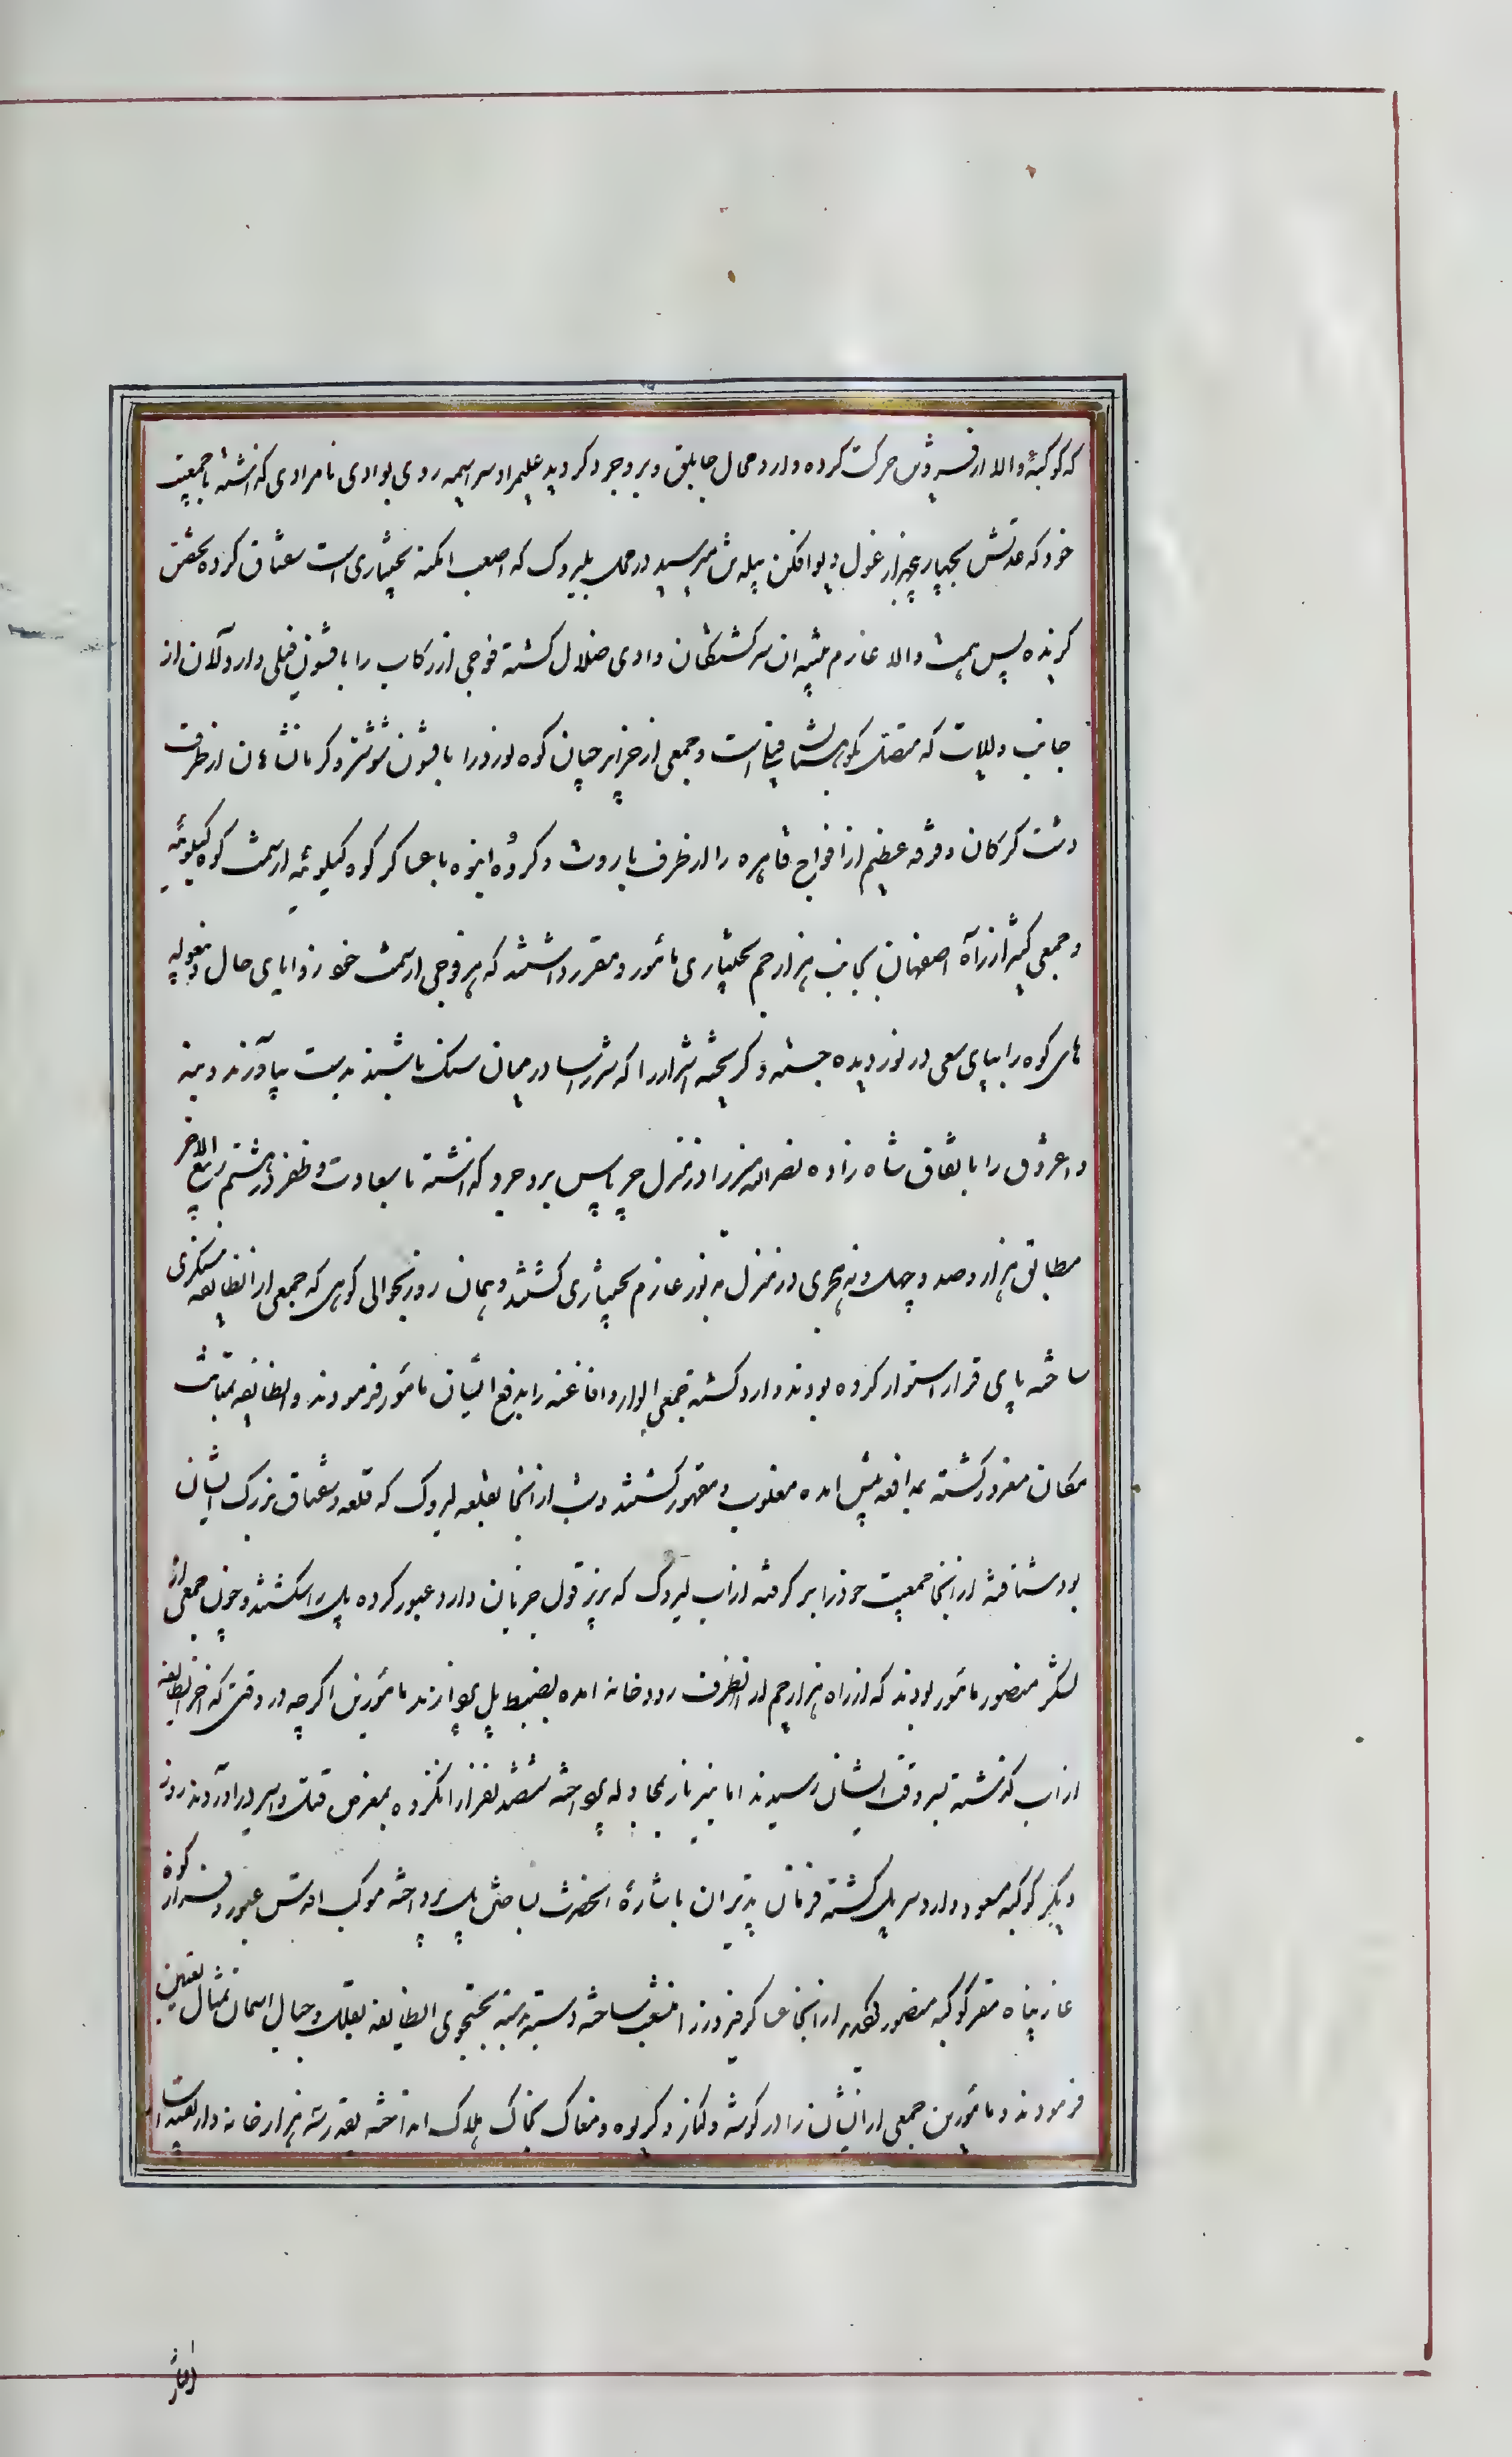 که کوکبهٔ والا از قزوین حرکت کرده وارد محال جابلق و بروجرد کردید علیمراد سراسیمه روی بوادی نامرادی کذاشته با جمعیت
خود که عدتش بچهار هزار غول دیو افکن پیلتن میرسید در محل لیروک که اصعب امکنه بختیاری است سقناق کرده تحصن
کزیده پس همت والا عازم تنبیه ان سرکشتکان وادی ضلال کشته فوجی از رکاب را با قشون فیلی وارد آلان از
جانب ولایات که متصل بکوهستان فیلی است و جمعی از خزایرچیان کوه نورد را با قشون شوشتر و کرمانشاهان از طرف
دشت کرکان و فرقه عظیم از افواج قاهره را از طرف باروت و کروه انبوه با عساکر کوه کیلویه از سمت کوه کیلویه
و جمعی کثیر از راه اصفهان بجانب هزارجم بختیاری مامور و مقرر داشتند که هر فوجی از سمت خود زوایای جبال و بیغوله
های کوه را بپای سعی در نوردیده جسته و کریخته اشرار را که شرراسا در میان سنک باشند بدست بیاورند و بنه
و اغروق را باتفاق شاه زاده نصرالله میرزا در منزل چرپاس بروجرد کذاشته با سعادت و ظفر در هشتم ربیع الاخر
مطابق هزار و صد و چهل و نه هجری در منزل مزبور عازم بختیاری کشتند و همان روز بحوالی کوهی که جمعی از انطایفه سنکری
ساخته پای قرار استوار کرده بودند وارد کشته جمعی الوار و افاغنه را بدفع ایشان مامور فرمودند و انطایفه بمتانت
مکان مغرور کشته بمدافعه پیش امده مغلوب و مقهور کشتند و شب از انجا بقلعه لیروک که قلعه و سقناق بزرک ایشان
بود شتافته از انجا جمعیت خود را بر کرفته از اب لیروک که بر دزفول جریان دارد عبور کرده پل را شکستند و چون جمعی از
لشکر منصور مامور بودند که از راه هزارجم از انطرف رودخانه امده بضبط پل پردازند مامورین اکرچه در وقتی که اخر انطایفه
از اب کذشته بسر وقت ایشان رسیدند اما نیز باز بمجادله پرداخته ششصد نفر از انکروه بمعرض قتل و اسر در آوردند روز
دیکر کوکبه مسعود وارد سر پل کشته فرمان پذیران باشارهٔ انحضرت بساختن پل پرداخته موکب اقدس عبور و فراز کوه
غازیناه مقر کوکبه منصور کردید از انجا عساکر فیروز را منشعب ساخته دسته دسته بجستجوی انطایفه بقلل و جبال اسمان تمثال تعیین
فرمودند و مامورین جمعی از ایشان را در کوشه و کنار و کریوه و مغاک بخاک هلاک انداخته بقدر سه هزار خانه دار بقید ا